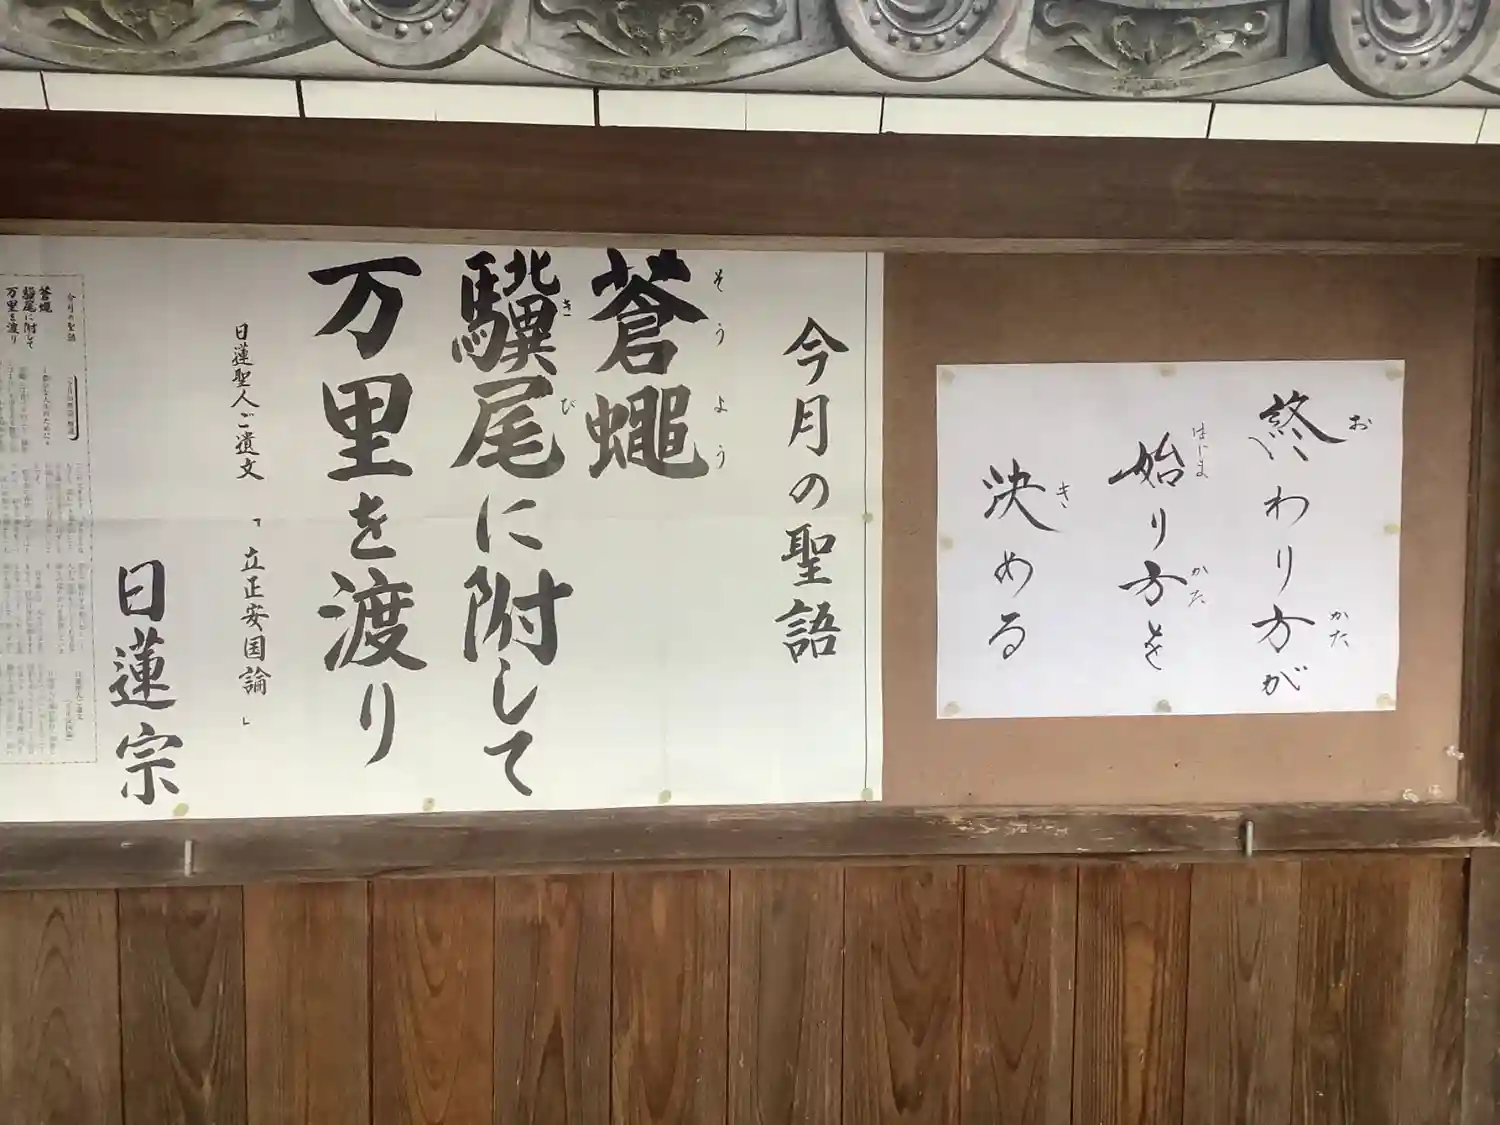 終わり方が
お
かた
始り方を
はじま
かた
決める
き
今月の聖語
蒼蠅
そうよう
驥尾に附して
きび
万里を渡り
日蓮聖人ご遺文
「立正安国論」
日蓮宗
今月の聖語
蒼蠅
驥尾に附して
万里を渡り